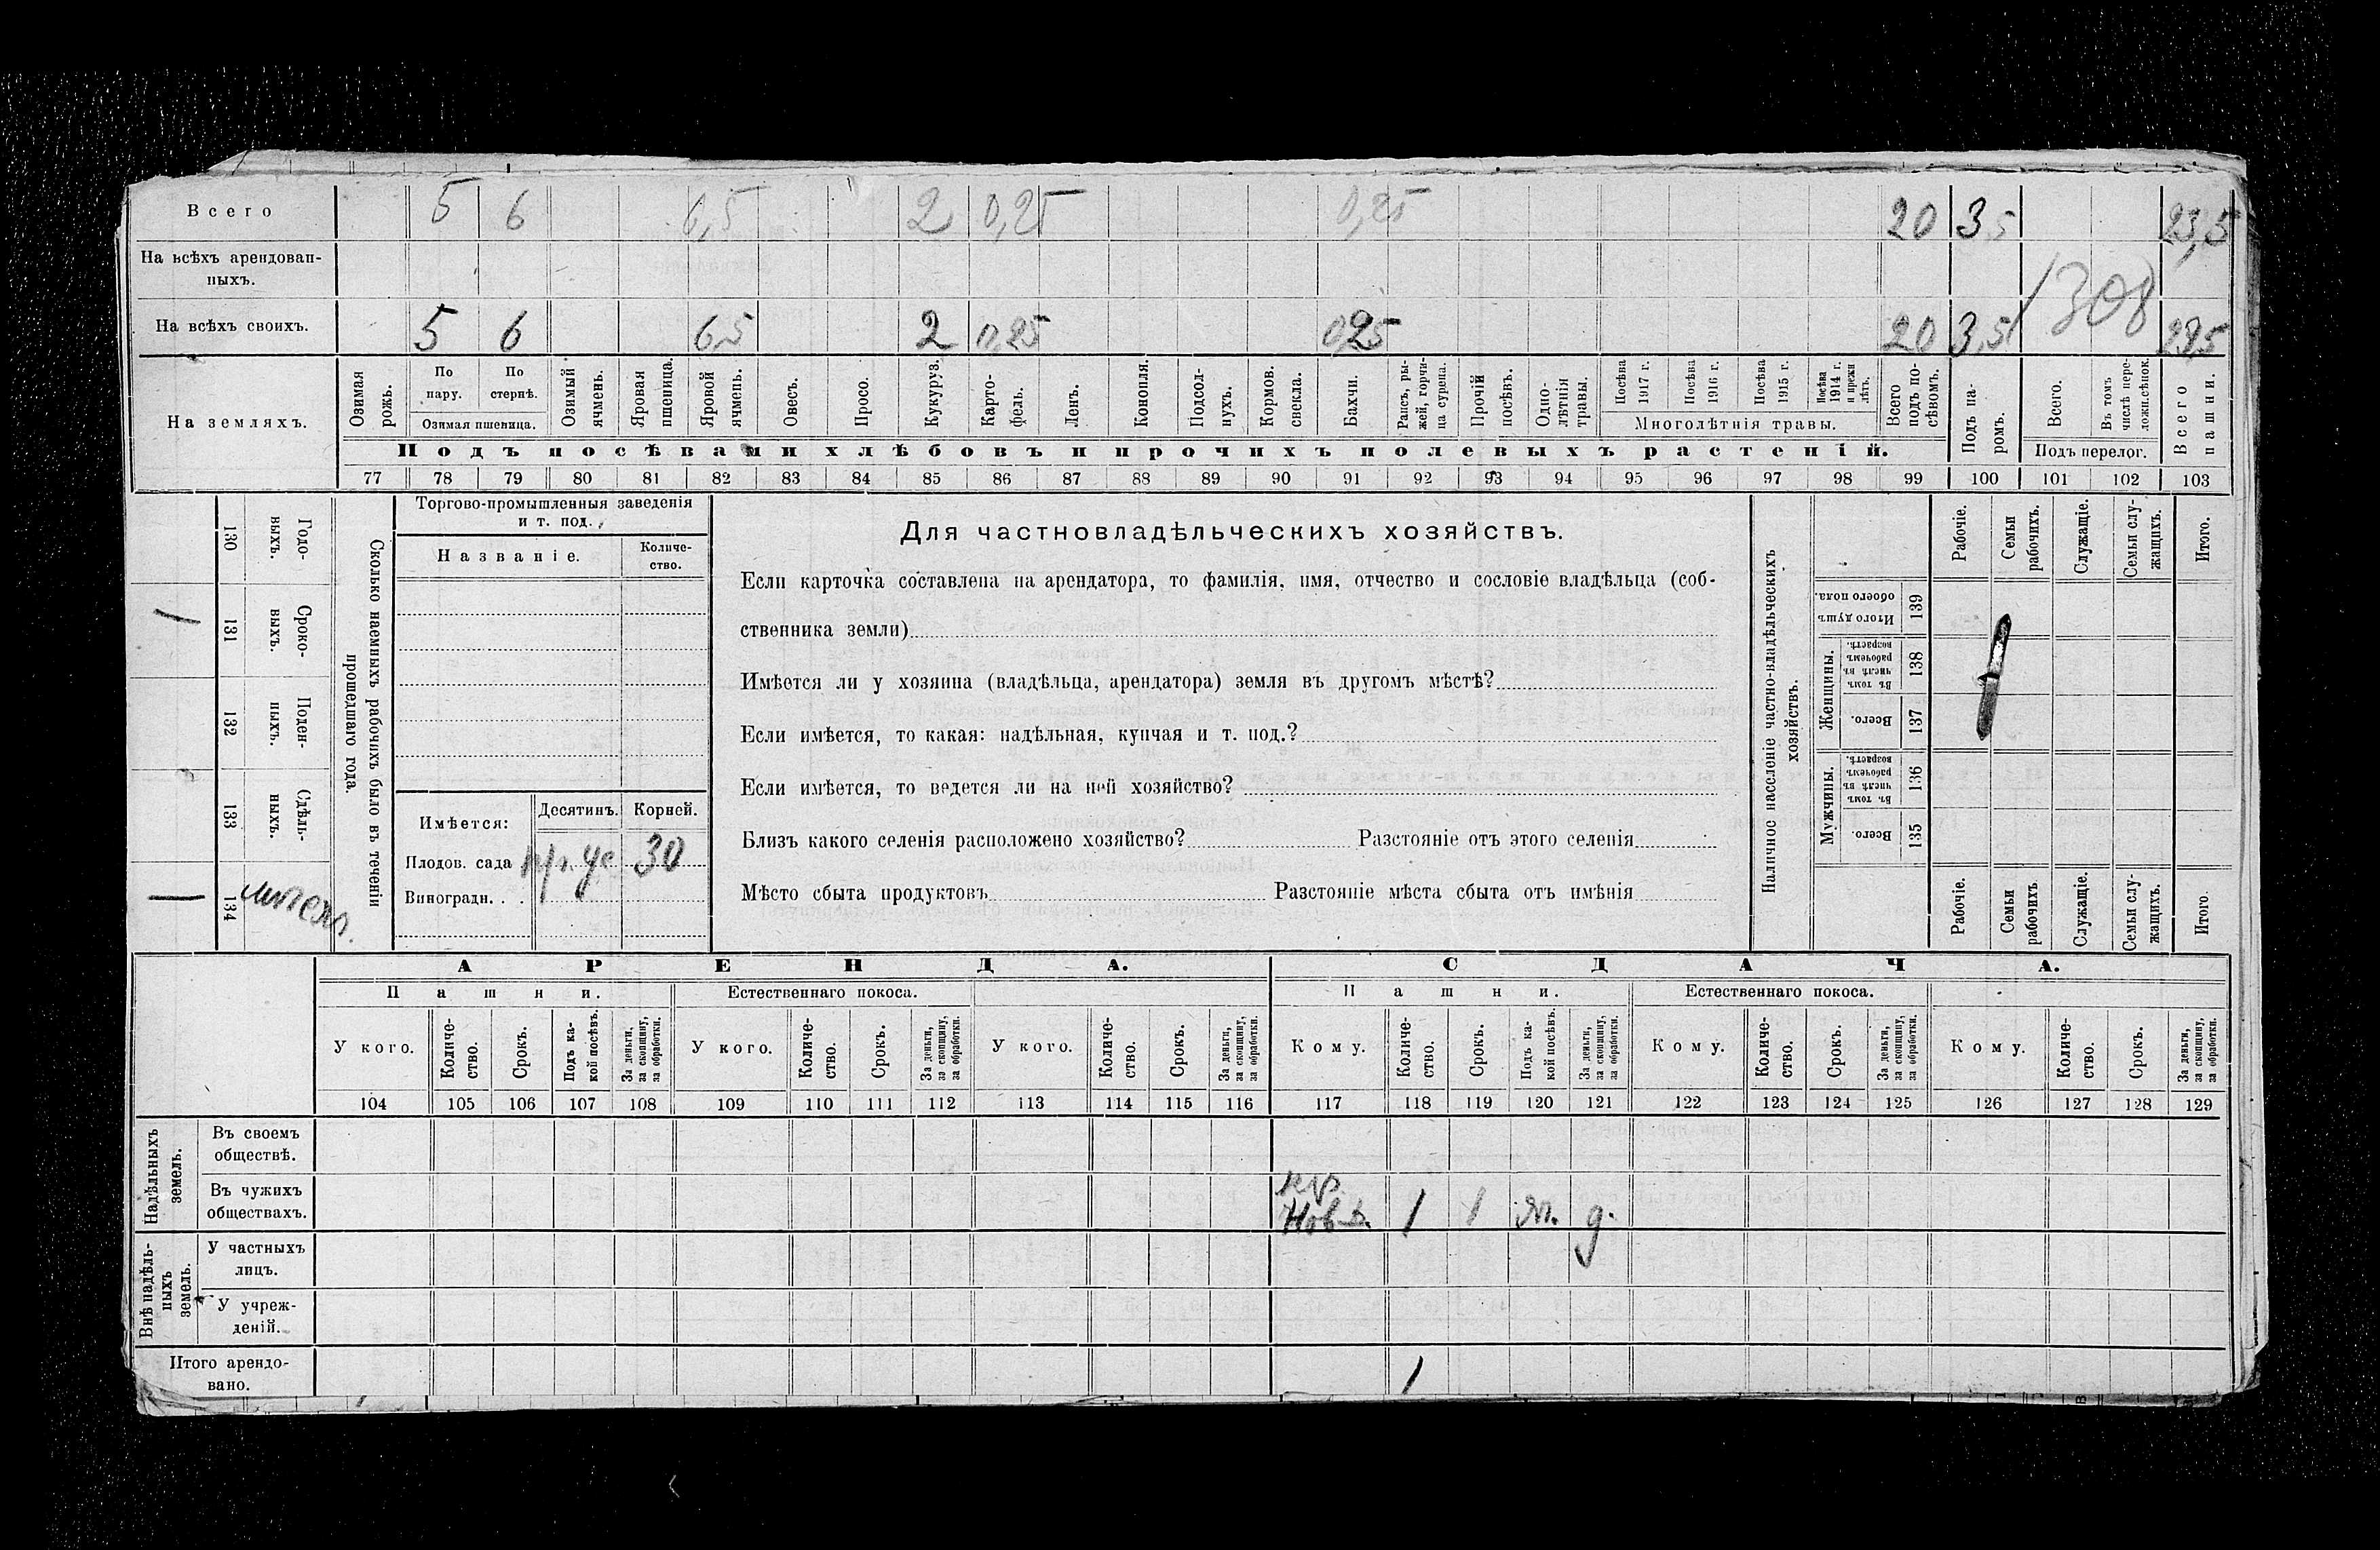 Всего 5 6 6,5 2 0,25 0,25 20 3,5 23,5
На всѣхъ арендован-
ныхъ.
1308
На всѣхъ своихъ. 5 6 6,5 2 0,25 0,25 20 3,5 23,5
На земляхъ.
Озимая рожь.
По пару.
По стернѣ.
Озимая пшеница.
Озимый ячмень.
Яровая пшеница.
Яровой ячмень.
Овесъ.
Просо.
Кукуруз.
Карто-
фель.
Ленъ.
Конопля.
Подсол-
нухъ.
Кормов. свекла.
Бахчи.
Рапсъ, ры-
жей, горчи-
ца сурепа.
Прочій посѣвъ.
Одно-
лѣтнія травы.
Посѣва 1917 г.
Посѣва 1916 г.
Посѣва 1915 г.
Посѣва 1914 г. и прежн лѣтъ.
Многолѣтнія травы.
Всего подъ по-
сѣвомъ.
Подъ па-
ромъ.
Всего.
Въ томъ числѣ пере-
ложн.сѣнок.
Подъ перелог.
Всего пашни.
Подъ посѣвами хлѣбовъ и прочихъ полевыхъ растеній.
77 78 79 80 81 82 83 84 85 86 87 88 89 90 91 92 93 94 95 96 97 98 99 100 101 102 103
Сколько наемныхъ рабочихъ было въ теченіи
прошедшаго года.
Годо-
выхъ.
130
Сроко-
выхъ.
131
Поден-
ныхъ.
132
Сдѣль-
ныхъ.
133
134
Торгово-промышленныя заведенія
и т. под.
Названіе.
Количе-
ство.
Имѣется:
Десятинъ.
Корней.
Плодов. сада пр. ус 30
Виноградн. . .
Для частновладѣльческихъ хозяйствъ.
Если карточка составлена на арендатора, то фамилія, имя, отчество и сословіе владѣльца (соб-
ственника земли)
Имѣется ли у хозяина (владѣльца, арендатора) земля въ другомъ мѣстѣ?
Если имѣется, то какая: надѣльная, купчая и т. под.?
Если имѣется, то ведется ли на ней хозяйство?
Близъ какого селенія расположено хозяйство? Разстояніе отъ этого селенія
Мѣсто сбыта продуктовъ Разстояніе мѣста сбыта отъ имѣнія
Наличное населеніе частно-владѣльческихъ
хозяйствъ.
Рабочіе.
Семьи рабочихъ.
Служащіе.
Семьи слу-
жащихъ.
Итого.
Итого душъ обоего пола.
139
Женщины.
Въ томъ числѣ въ рабочемъ возрастѣ.
138
Всего.
137
Мужчины.
Въ томъ числѣ въ рабочемъ возрастѣ.
136
Всего.
135
Рабочіе.
Семьи рабочихъ
Служащіе.
Семьи слу-
жащихъ.
Итого.
АРЕНДА.
СДАЧА.
Пашни.
Естественнаго покоса.
Пашни.
Естественнаго покоса.
У кого.
Количе-
ство.
Срокъ.
Подъ ка-
кой посѣвъ.
За деньги,
за скопщину,
за обработки.
У кого.
Количе-
ство.
Срокъ.
За деньги,
за скопщину,
за обработки.
У кого.
Количе-
ство.
Срокъ.
За деньги,
за скопщину,
за обработки.
Кому.
Количе-
ство.
Срокъ.
Подъ ка-
кой посѣвъ.
За деньги,
за скопщину,
за обработки.
Кому.
Количе-
ство.
Срокъ.
За деньги,
за скопщину,
за обработки.
Кому.
Количе-
ство.
Срокъ.
За деньги,
за скопщину,
за обработки.
104 105 106 107 108 109 110 111 112 113 114 115 116 117 118 119 120 121 122 123 124 125 126 127 128 129
Надѣльныхъ
земель.
Въ своемъ
обществѣ.
Въ чужихъ
обществахъ.
кр.
1 1 яч. д.
Внѣ надѣль-
ныхъ
земель.
У частныхъ
лицъ.
У учреж-
деній.
Итого арендо-
вано.
1